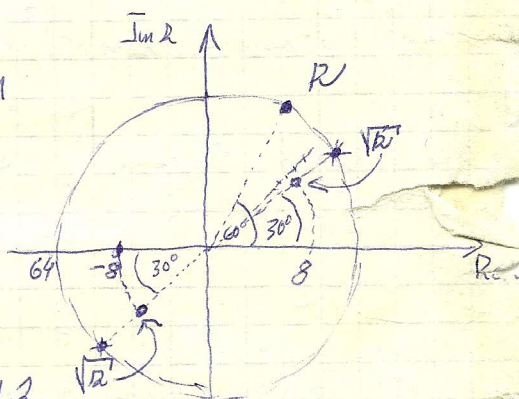 Im k
k
√k
60°
30°
64
-8
30°
8
Re
√k